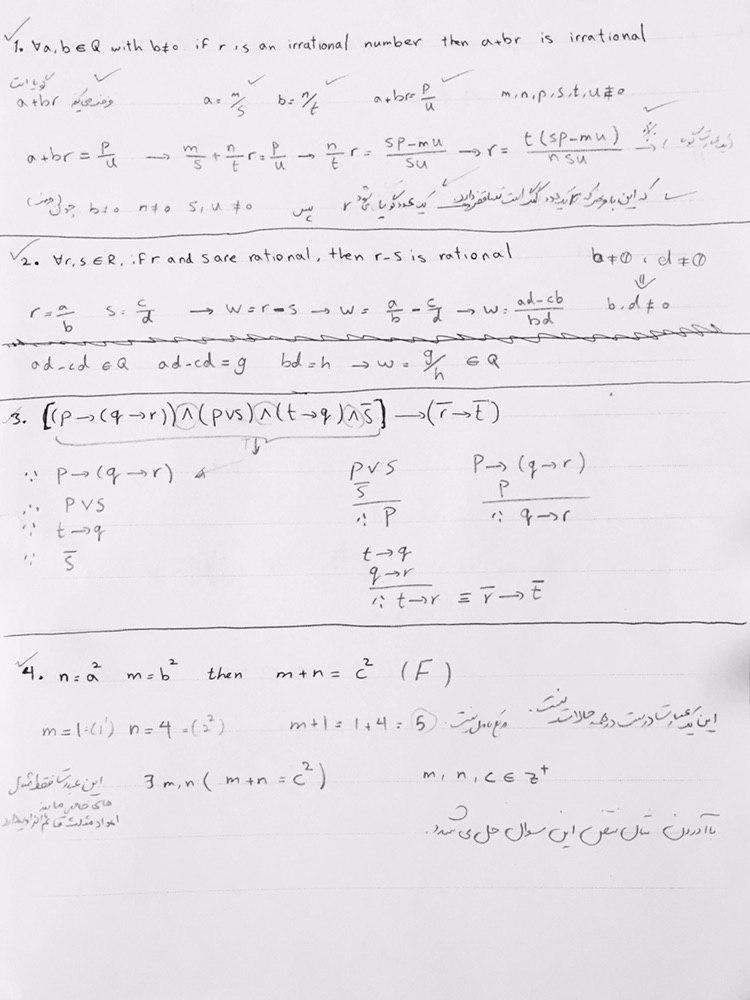 1. ∀a,b ∈ Q with b≠0 if r is an irrational number then a+br is irrational
فرض می‌کنیم a+br گویا است a = m/s b = n/t a+br = p/u m,n,p,s,t,u ≠ 0
a+br = p/u → m/s + n/t r = p/u → n/t r = sp-mu/su → r = t(sp-mu)/nsu
چون b≠0 n≠0 s,u≠0 پس r یک عدد گویا می‌شود که این با
2. ∀r,s ∈ R, if r and s are rational, then r-s is rational b≠0, d≠0
r = a/b s = c/d → w = r-s → w = a/b - c/d → w = ad-cb/bd b.d≠0
ad-cd ∈ Q ad-cd = g bd = h → w = g/h ∈ Q
3. [(p→(q→r)) ∧ (p∨s) ∧ (t→q) ∧ s̅] → (r̅→t̅)
∵ P→(q→r)
∴ P∨s
∵ t→q
∵ s̅
P∨s
s̅
∴ P
P→(q→r)
P
∴ q→r
t→q
q→r
∴ t→r ≡ r̅→t̅
4. n=a² m=b² then m+n = c² (F)
m=1=(1²) n=4=(2²) m+1 = 1+4 = 5 مربع کامل نیست این یک عبارت درست در همه حالات نیست.
∃ m,n (m+n = c²) m, n, c ∈ z⁺
این عبارت فقط
های خاص مانند
اعداد مثلث قائم الزاویه
با آوردن مثال نقض این سوال حل می‌شود.